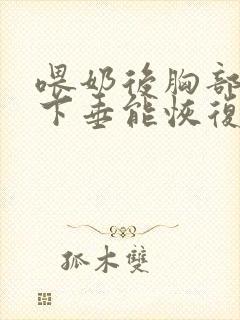 喂奶後胸部
下垂能恢復
孤木雙